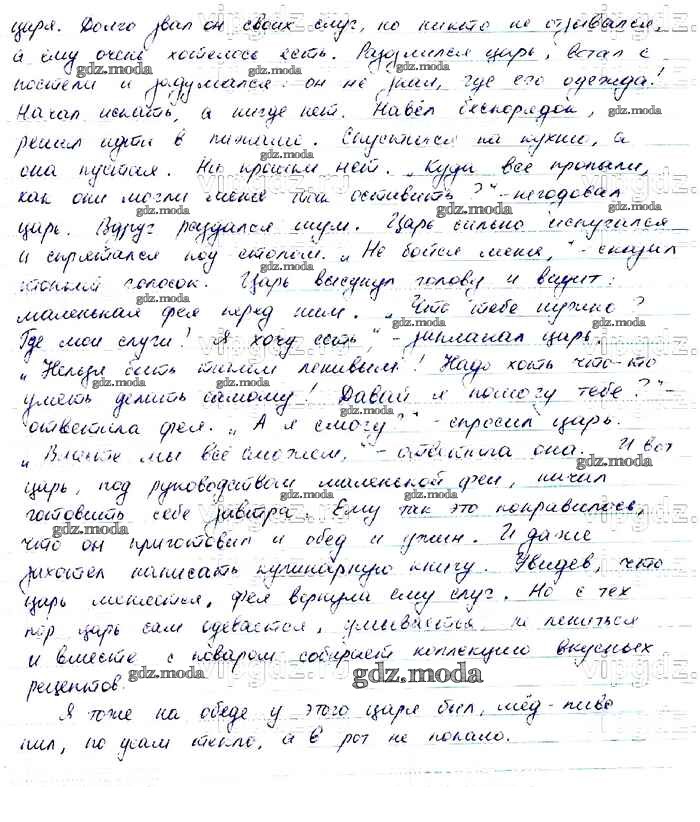 царя. Долго звал он своих слуг, но никто не отзывался,
а ему очень хотелось есть. Разозлился царь, встал с
постели и задумался: он не знал, где его одежда!
Начал искать, а нигде нет. Навёл беспорядок,
решил идти в пижаме. Спустился на кухню, а
она пустая. Ни крошки нет. „Куда все пропали,
как они могли меня так оставить?" - негодовал
царь. Вдруг раздался шум. Царь сильно испугался
и спрятался под столом. „Не бойся меня," - сказал
тонкий голосок. Царь высунул голову и видит:
маленькая фея перед ним. „Что тебе нужно?
Где мои слуги! Я хочу есть," - заплакал царь.
„Нельзя быть таким ленивым! Надо хоть что-то
уметь делать самому! Давай я помогу тебе?" -
ответила фея. „А я смогу?" - спросил царь.
„Вместе мы всё сможем," - ответила она. И вот
царь, под руководством маленькой феи, начал
готовить себе завтрак. Ему так это понравилось,
что он приготовил и обед и ужин. И даже
захотел написать кулинарную книгу. Увидев, что
царь меняется, фея вернула ему слуг. Но с тех
пор царь сам одевается, умывается, не ленится
и вместе с поваром собирает коллекцию вкусных
рецептов.
Я тоже на обеде у этого царя был, мёд-пиво
пил, по усам текло, а в рот не попало.
gdz.moda
vipgdz.ru